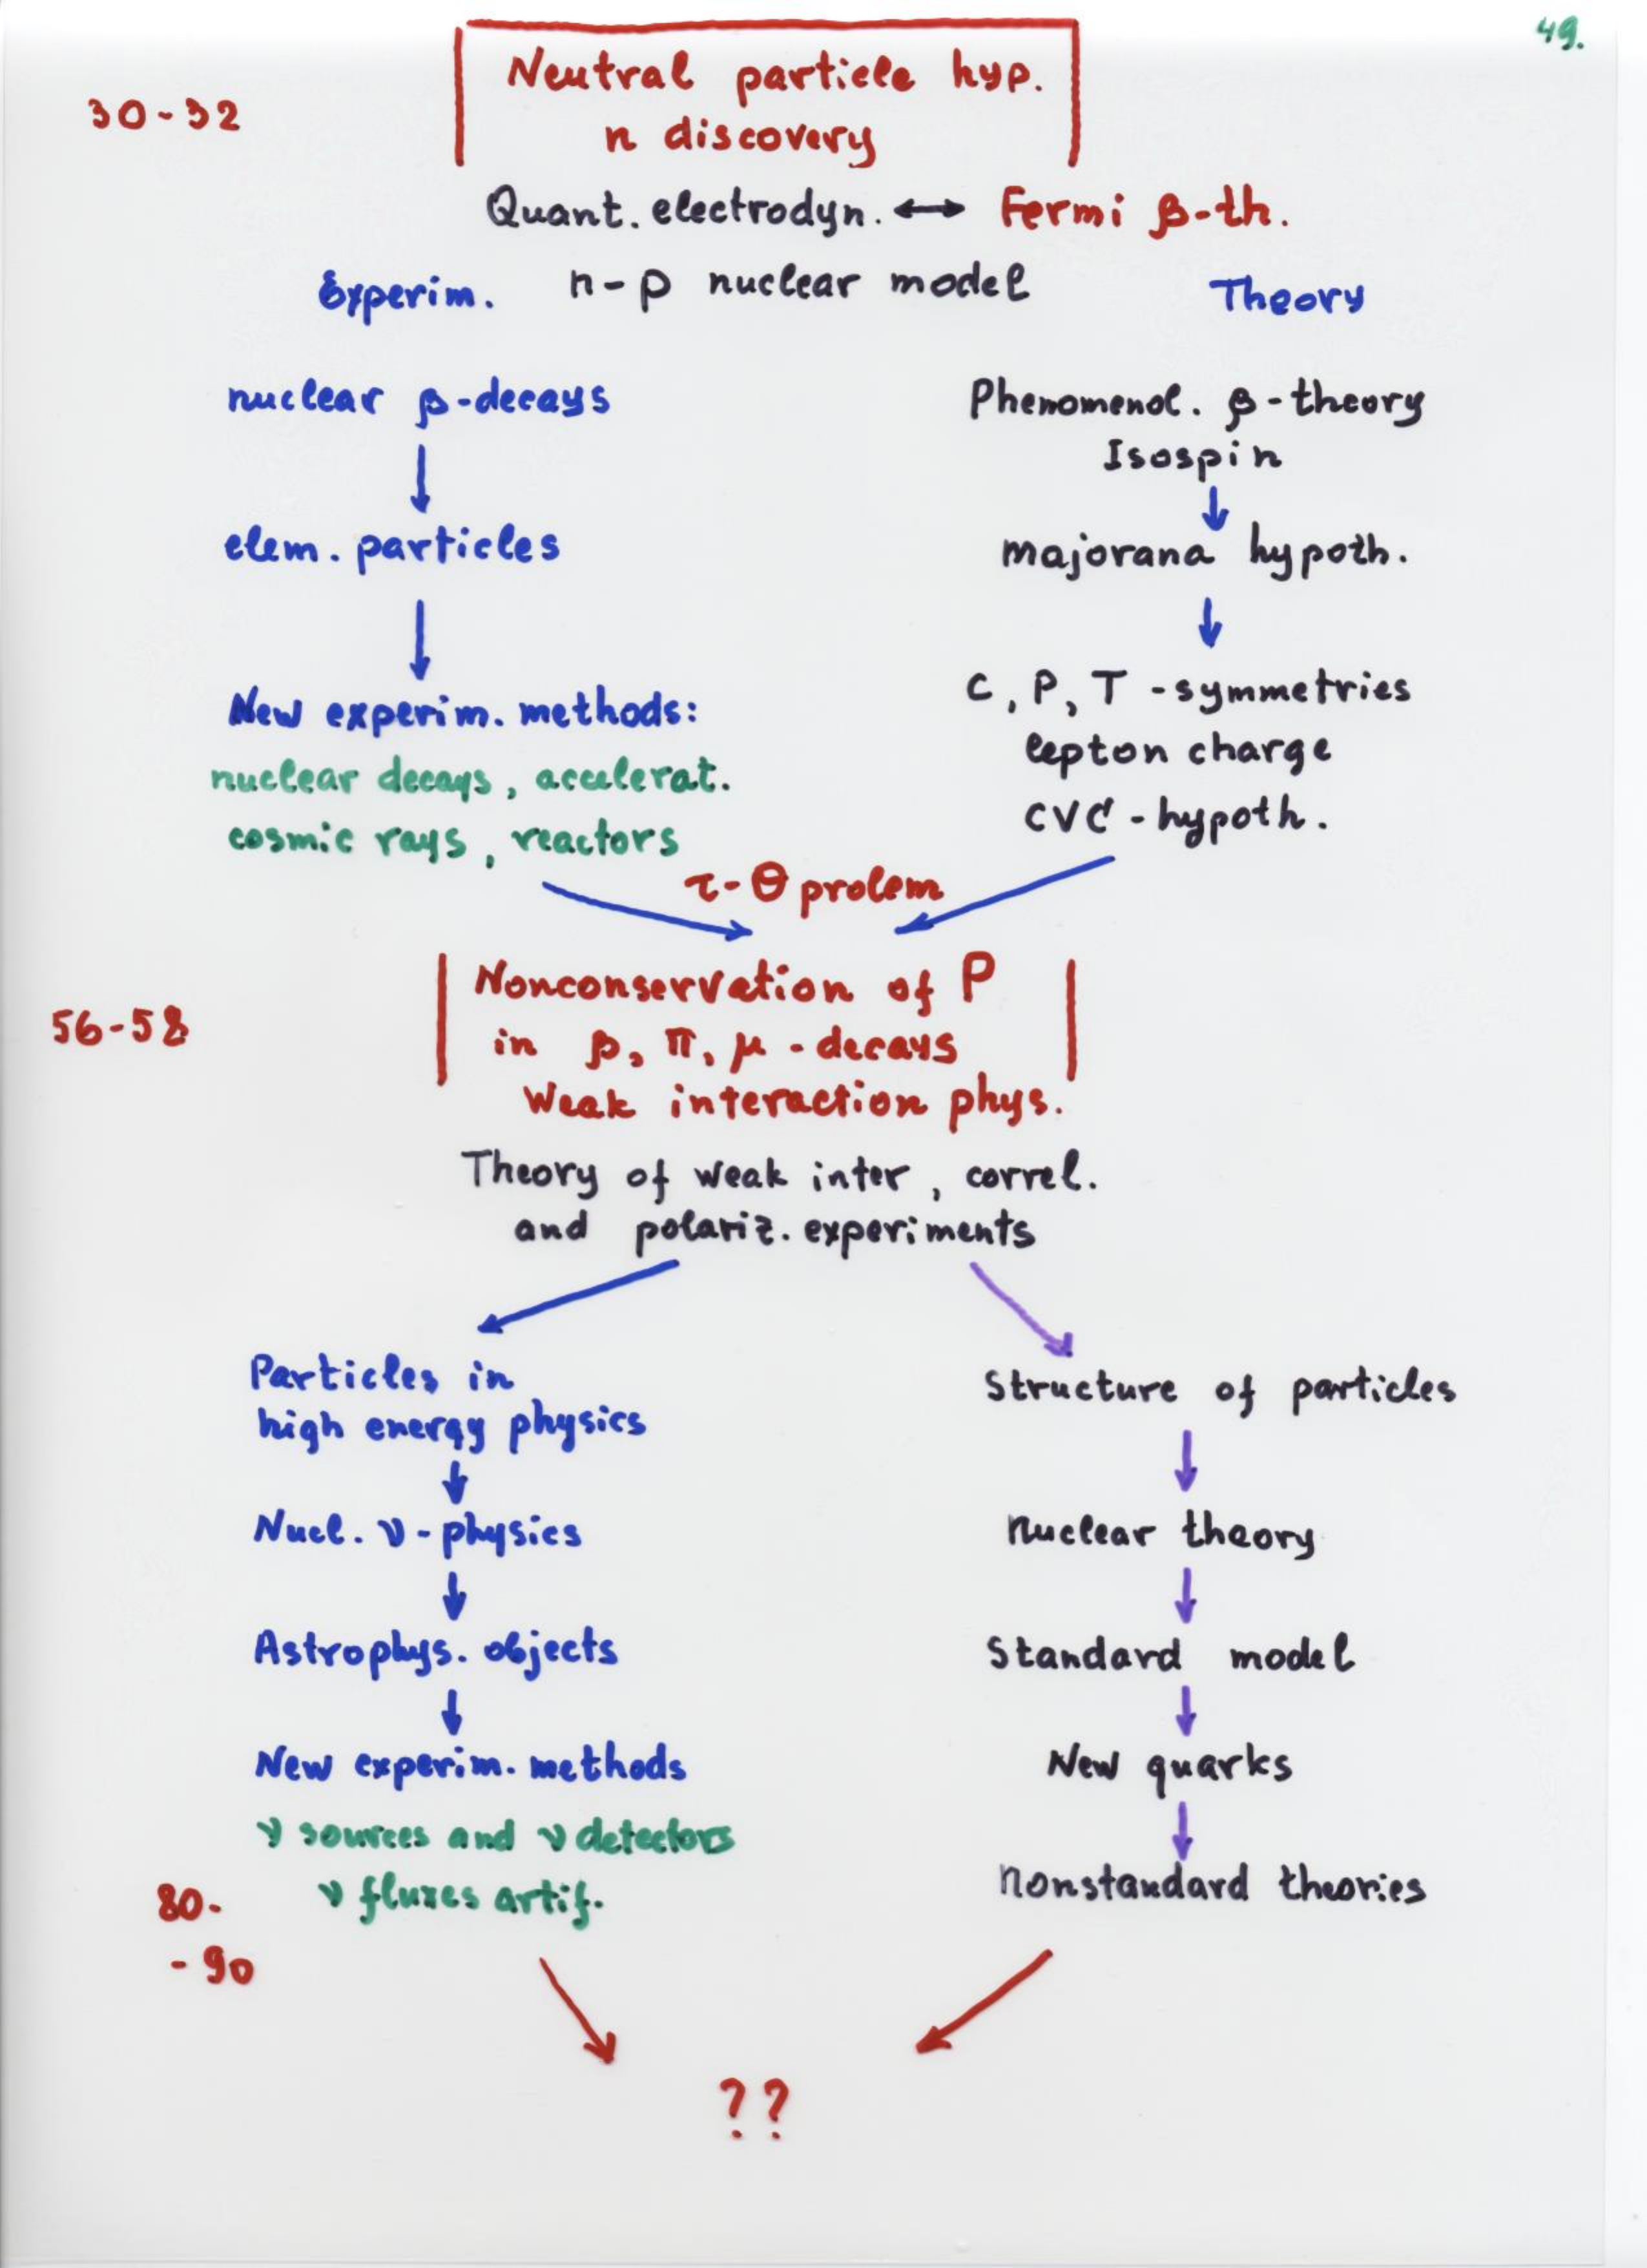 49.
30-32
Neutral particle hyp.
n discovery
Quant. electrodyn. ↔ Fermi β-th.
Experim. n-p nuclear model Theory
nuclear β-decays
elem. particles
New experim. methods:
nuclear decays, accelerat.
cosmic rays, reactors
Phenomenol. β-theory
Isospin
majorana hypoth.
C, P, T -symmetries
lepton charge
CVC - hypoth.
τ-θ prolem
56-58
Nonconservation of P
in β, π, μ - decays
Weak interaction phys.
Theory of weak inter, correl.
and polariz. experiments
Particles in
high energy physics
Nucl. ν-physics
Astrophys. objects
New experim. methods
ν sources and ν detectors
ν fluxes artif.
80-
-90
Structure of particles
nuclear theory
Standard model
New quarks
nonstandard theories
??